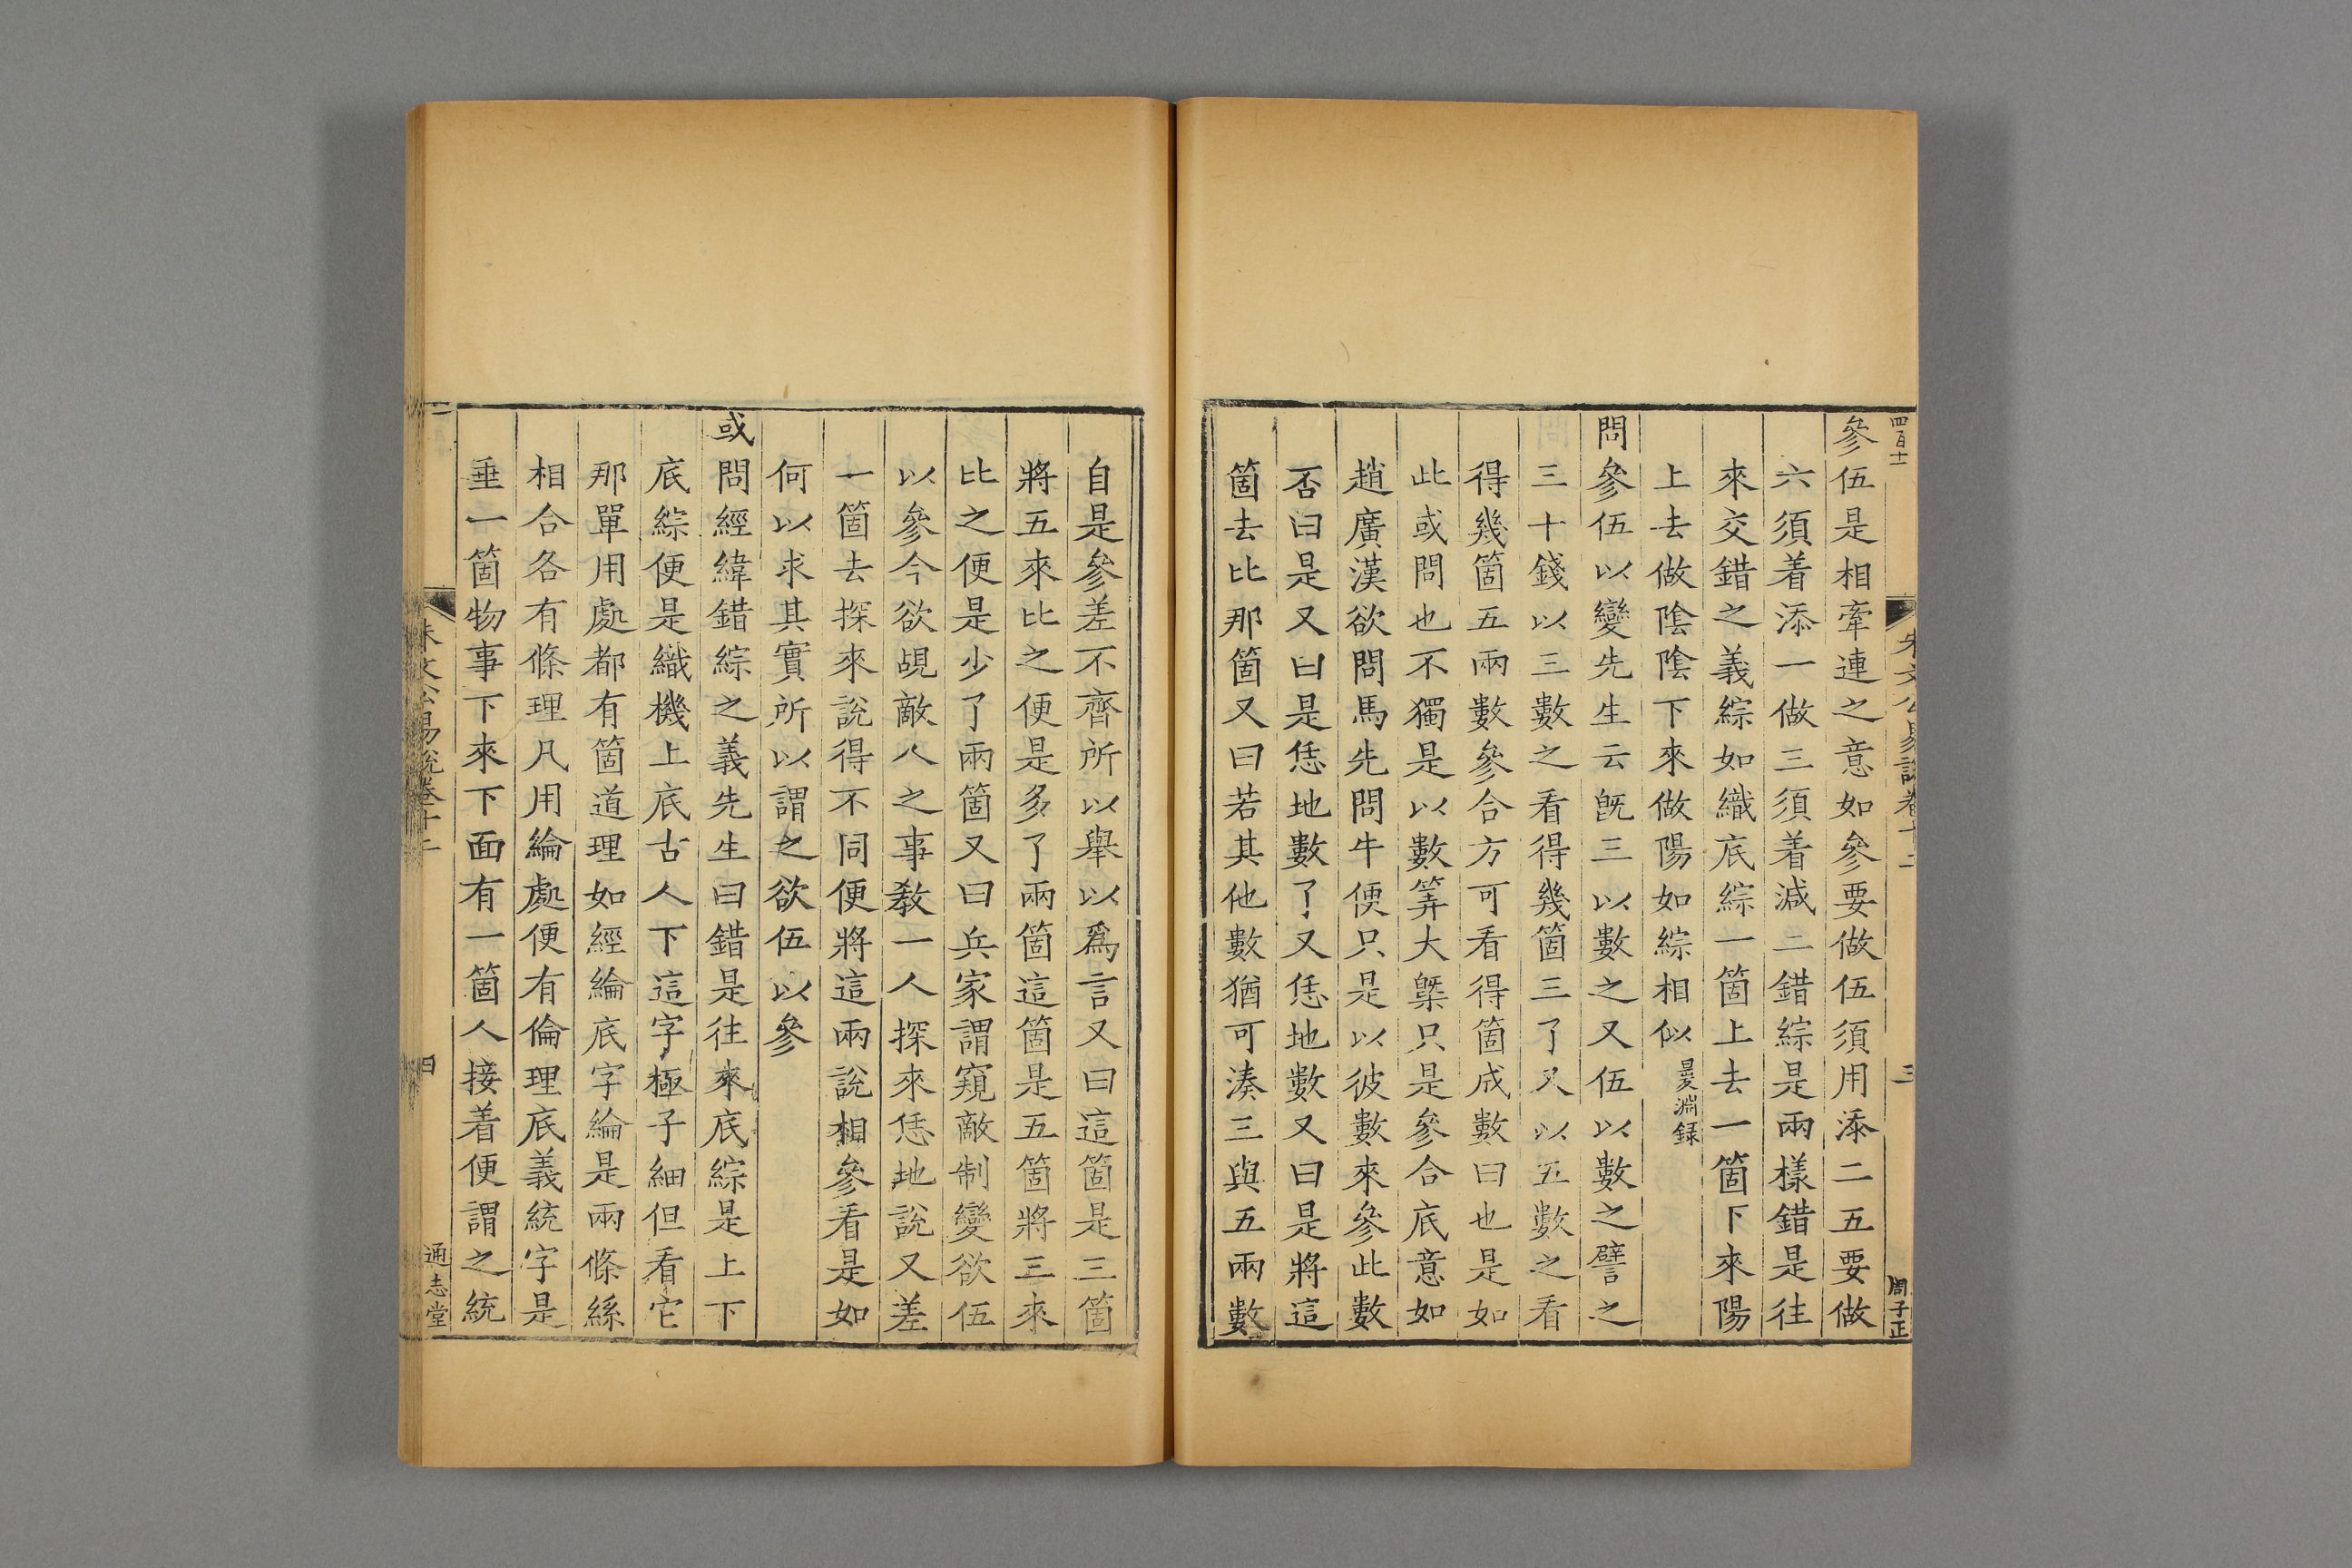 四百十一
朱文公易說卷十二
三
周子正
參伍是相牽連之意如參要做伍須用添二五要做
六須着添一做三須着減二錯綜是兩樣錯是往
來交錯之義綜如織底綜一箇上去一箇下來陽
上去做陰陰下來做陽如綜相似㬊淵録
問參伍以變先生云旣三以數之又伍以數之譬之
三十錢以三數之看得幾箇三了又以五數之看
得幾箇五兩數參合方可看得箇成數曰也是如
此或問也不獨是以數筭大槩只是參合底意如
趙廣漢欲問馬先問牛便只是以彼數來參此數
否曰是又曰是恁地數了又恁地數又曰是將這
箇去比那箇又曰若其他數猶可湊三與五兩數
自是參差不齊所以舉以爲言又曰這箇是三箇
將五來比之便是多了兩箇這箇是五箇將三來
比之便是少了兩箇又曰兵家謂窺敵制變欲伍
以參今欲覘敵人之事教一人探來恁地說又差
一箇去探來說得不同便將這兩說相參看是如
何以求其實所以謂之欲伍以參
或問經緯錯綜之義先生曰錯是往來底綜是上下
底綜便是織機上底古人下這字極子細但看它
那單用處都有箇道理如經綸底字綸是兩條絲
相合各有條理凡用綸處便有倫理底義統字是
垂一箇物事下來下面有一箇人接着便謂之統
朱文公易說卷十二
四
通志堂